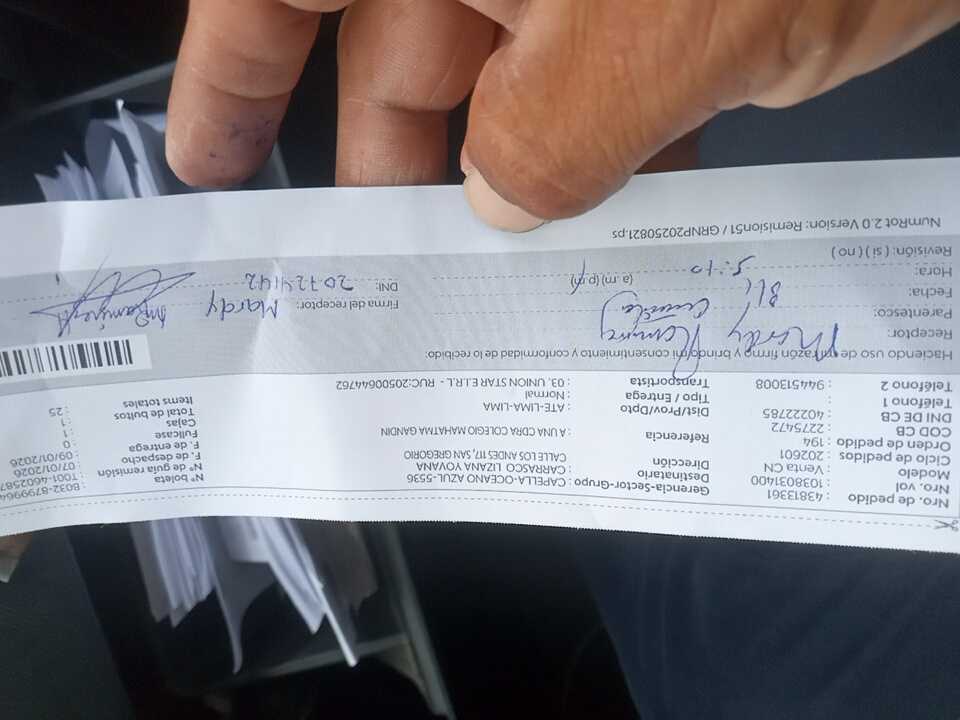 Nro. de pedido : 43813361
Nro. vol : 1038031400
Modelo : Venta CN
Ciclo de pedidos : 202601
Orden de pedido : 194
COD CB : 2275472
DNI DE CB : 40222785
Teléfono 1 :
Teléfono 2 : 944513008
Gerencia-Sector-Grupo : CAPELLA-OCEANO AZUL-5536
Destinatario : CARRASCO LIZANA YOVANA
Dirección CALLE LOS ANDES 117, SAN GREGORIO
Referencia : A UNA CDRA COLEGIO MAHATMA GANDIN
Dist/Prov/Dpto : ATE-LIMA-LIMA
Tipo / Entrega : Normal
Transportista : 03. UNION STAR E.I.R.L. - RUC:20500644762
N° boleta B032-8799964
N° de guía remisión : T001-4602587
F. de despacho : 07/01/2026
F. de entrega : 09/01/2026
Fullcase : 0
Cajas : 1
Total de bultos : 1
Items totales : 25
Haciendo uso de mi razón firmo y brindo mi consentimiento y conformidad de lo recibido:
Receptor: Mardy Ramirez
Parentesco: Cuñada
Fecha:
Hora: 5:10 (a.m) (p.m)
Revisión: ( si ) ( no )
Firma del receptor: Mardy
DNI: 20724142
NumRot 2.0 Version: Remision51 / GRNP20250821.ps